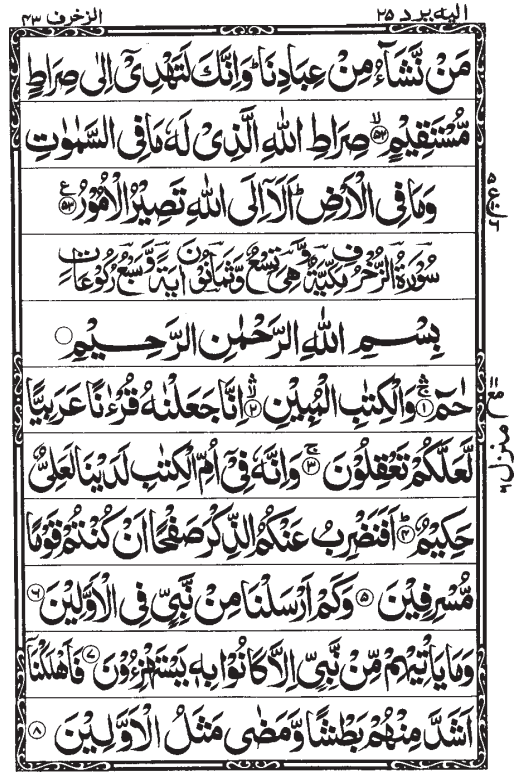 اليه يرد ٢٥
الزخرف ٤٣
مَنْ نَّشَآءُ مِنْ عِبَادِنَا ؕ وَاِنَّكَ لَتَهْدِىْٓ اِلٰى صِرَاطٍ
مُّسْتَقِيْمٍ ۙ‏﴿۵۲﴾ صِرَاطِ اللّٰهِ الَّذِىْ لَهٗ مَا فِى السَّمٰوٰتِ
وَمَا فِى الْاَرْضِ ؕ اَلَاۤ اِلَى اللّٰهِ تَصِيْرُ الْاُمُوْرُ ﴿۵۳﴾ ع
سُوْرَةُ الزُّخْرُفِ مَكِّيَّةٌ وَّهِىَ تِسْعٌ وَّثَمَانُوْنَ اٰيَةً وَّسَبْعُ رُكُوْعَاتٍ
بِسْمِ اللّٰهِ الرَّحْمٰنِ الرَّحِيْمِ
حٰمٓ ۚۛ ﴿۱﴾ وَالْكِتٰبِ الْمُبِيْنِ ۙۛ ﴿۲﴾ اِنَّا جَعَلْنٰهُ قُرْءٰنًا عَرَبِيًّا
لَّعَلَّكُمْ تَعْقِلُوْنَ ۚ ﴿۳﴾ وَاِنَّهٗ فِىْۤ اُمِّ الْكِتٰبِ لَدَيْنَا لَعَلِىٌّ
حَكِيْمٌ ؕ ﴿۴﴾ اَفَنَضْرِبُ عَنْكُمُ الذِّكْرَ صَفْحًا اَنْ كُنْتُمْ قَوْمًا
مُّسْرِفِيْنَ ﴿۵﴾ وَكَمْ اَرْسَلْنَا مِنْ نَّبِىٍّ فِى الْاَوَّلِيْنَ ﴿۶﴾
وَمَا يَاْتِيْهِمْ مِّنْ نَّبِىٍّ اِلَّا كَانُوْا بِهٖ يَسْتَهْزِءُوْنَ ﴿۷﴾ فَاَهْلَكْنَاۤ
اَشَدَّ مِنْهُمْ بَطْشًا وَّمَضٰى مَثَلُ الْاَوَّلِيْنَ ﴿۸﴾
منزل ۶